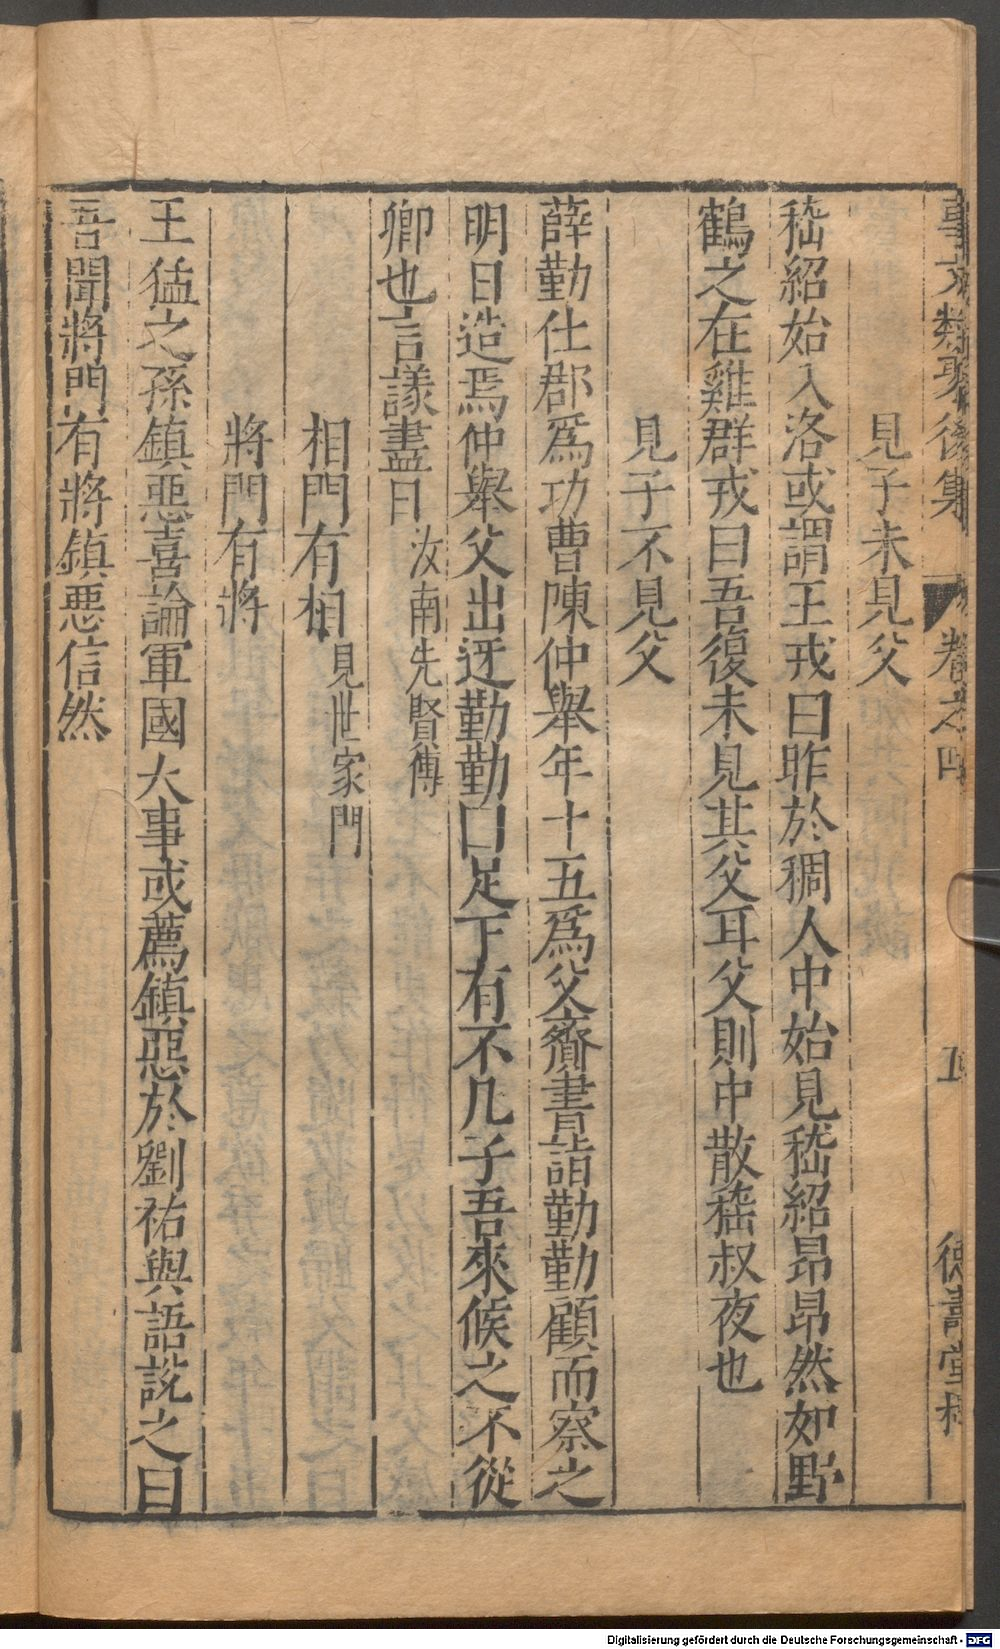 事文類聚後集 卷之四 五 德壽堂梓
見子未見父
嵇紹始入洛或謂王戎曰昨於稠人中始見嵇紹昂昂然如野
鶴之在雞群戎曰吾復未見其父耳父則中散嵇叔夜也
見子不見父
薛勤仕郡爲功曹陳仲舉年十五爲父齎書詣勤勤顧而察之
明日造焉仲舉父出迓勤勤曰足下有不凡子吾來候之不從
卿也言議盡日 汝南先賢傳
相門有相 見世家門
將門有將
王猛之孫鎮惡喜論軍國大事或薦鎮惡於劉祐與語說之曰
吾聞將門有將鎮惡信然
Digitalisierung gefördert durch die Deutsche Forschungsgemeinschaft - DFG